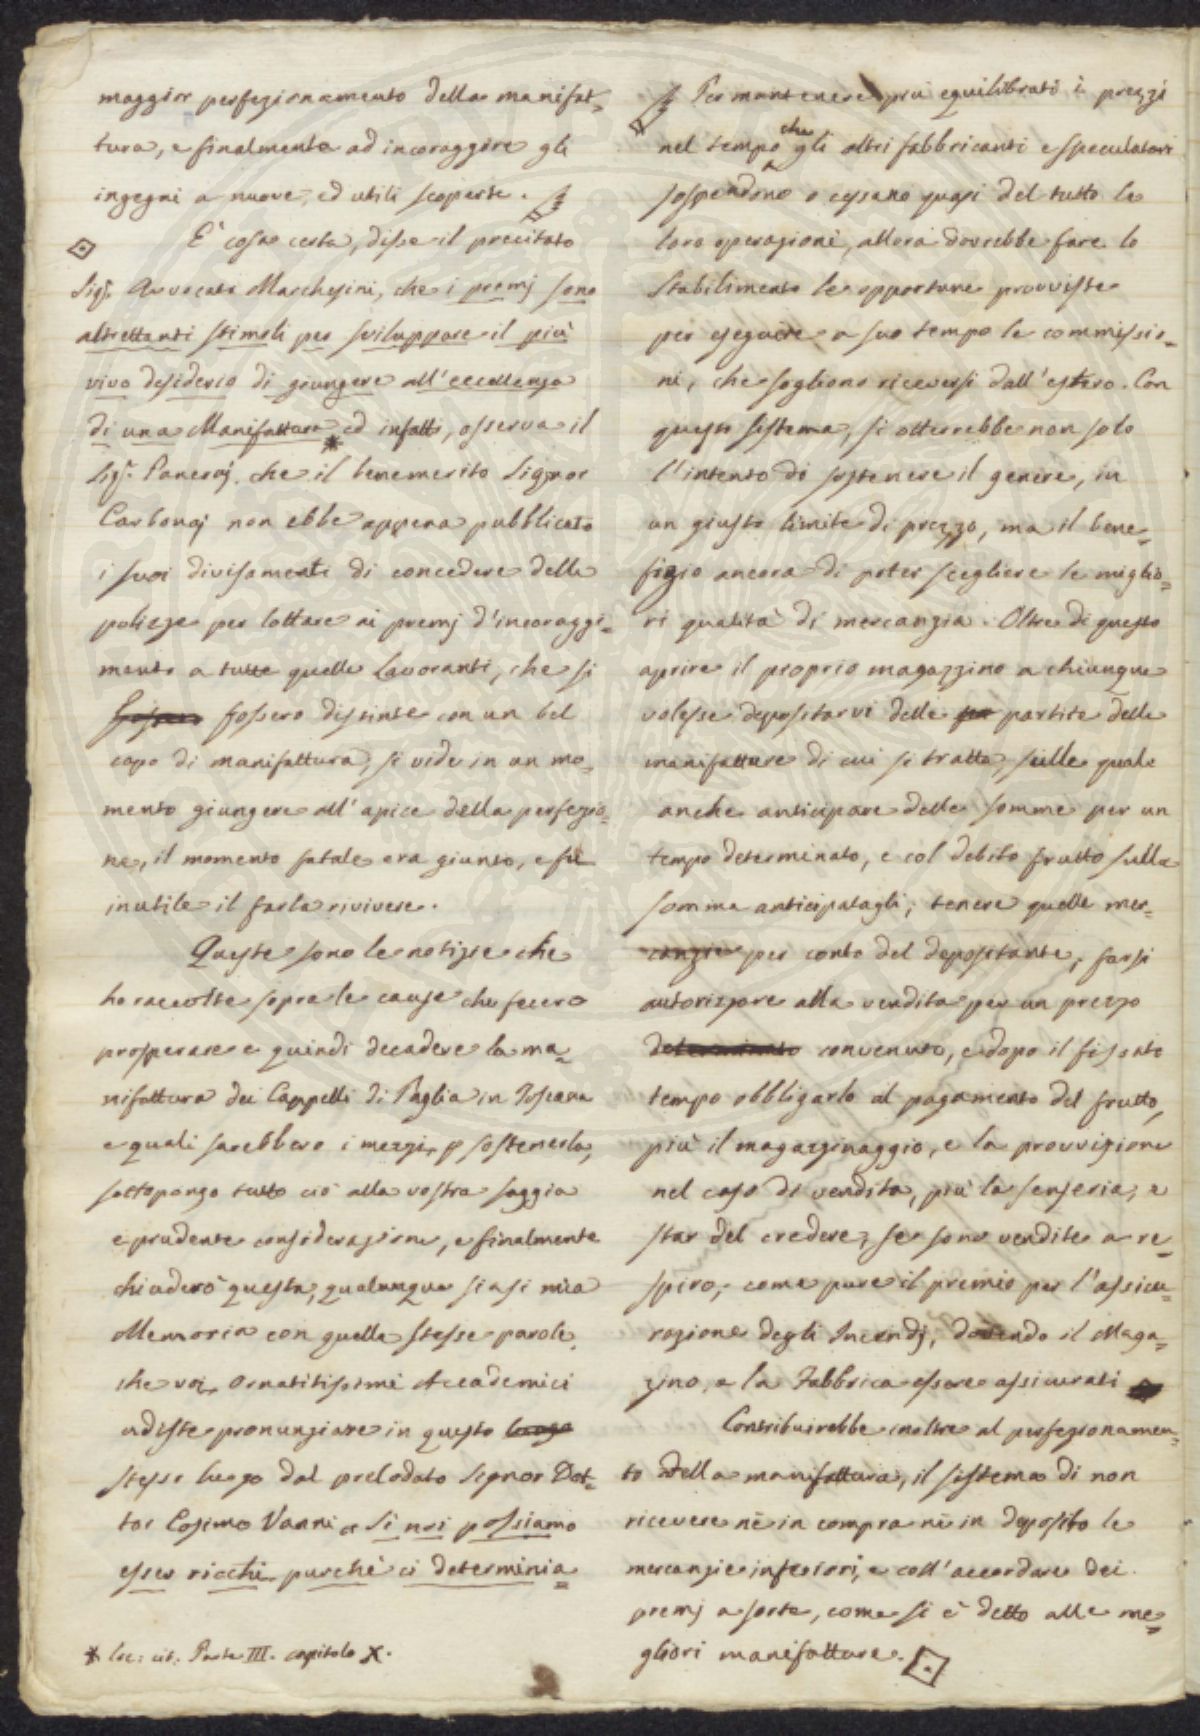 maggior perfezionamento della manifat=
tura, e finalmente ad incoraggire gli
ingegni a nuove, ed utili scoperte.
E' cosa certa, disse il precitato
Sig.r Avvocato Marchesini, che i premj sono
altrettanti stimoli per sviluppare il più
vivo desiderio di giungere all'eccellenza
di una Manifattura ed infatti, osserva il *
Sig.r Paneraj, che il benemerito Signor
Carbonaj non ebbe appena pubblicato
i suoi divisamenti di concedere delle
polizze per lottare ai premj d'incoraggi=
mento a tutte quelle Lavoranti, che si
fossero distinte con un bel
capo di manifattura, si vide in un mo=
mento giungere all'apice della perfezio=
ne, il momento fatale era giunto, e fù
inutile il farla rivivere.
Queste sono le notizie che
ho raccolte sopra le cause che fecero
prosperare e quindi decadere la ma=
nifattura dei Cappelli di Paglia in Toscana
e quali sarebbero i mezzi p sostenerla,
sottopongo tutto ciò alla vostra saggia
e prudente considerazione, e finalmente
chiuderò questa, qualunque siasi mia
Memoria con quelle stesse parole,
che voi, Ornatitissimi Accademici
udiste pronunziare in questo luogo
stesso luogo dal prelodato Signor Dot=
tor Cosimo Vanni = Si noi possiamo
esser ricchi purchè ci determinia=
* loc: cit: Parte III. capitolo X.
Per mantenere più equilibrati i prezzi
nel tempo che gli altri fabbricanti e speculatori
sospendono o cessano quasi del tutto le
loro operazioni, allora dovrebbe fare lo
Stabilimento le opportune provviste
per eseguire a suo tempo le commissio=
ni, che sogliono riceversi dall'estero. Con
questo sistema, si otterrebbe non solo
l'intento di sostenere il genere, in
un giusto limite di prezzo, ma il bene=
fizio ancora di poter scegliere le miglio=
ri qualità di mercanzia. Oltre di questo
aprire il proprio magazzino a chiunque
volesse depositarvi delle partite delle
manifatture di cui si tratta, sulle quale
anche anticipare delle somme per un
tempo determinato, e col debito frutto sulla
somma anticipatagli; tenere quelle mer=
canzie per conto del depositante, farsi
autorizzare alla vendita per un prezzo
determinato convenuto, e dopo il fissato
tempo obbligarlo al pagamento del frutto,
più il magazzinaggio, e la provvigione
nel caso di vendita, più la senseria, e
star del credere, se sono vendite a re=
spiro, come pure il premio per l'assicu=
razione degli Incendj, dovendo il Maga=
zzino, e la Fabbrica essere assicurati
Contribuirebbe inoltre al perfezionamen=
to della manifattura, il sistema di non
ricevere nè in compra nè in deposito le
mercanzie inferiori, e coll'accordare dei
premj a sorte, come si è detto alle me=
gliori manifatture.